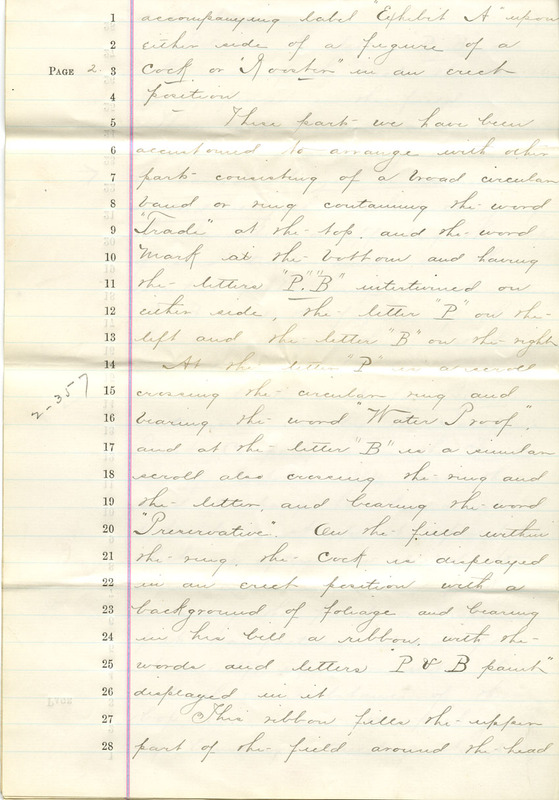 1 accompanying label "Exhibit A" upon
2 either side of a figure of a
PAGE 2 3 Cock or "Rooster" in an erect
4 position
5 These parts we have been
6 accustomed to arrange with other
7 parts consisting of a broad circular
8 band or ring containing the word
9 "Trade" at the top and the word
10 Mark at the bottom and having
11 the letters "P." "B" intertwined on
12 either side, the letter "P" on the
13 left and the letter "B" on the right
14 At the letter "P" is a scroll
2-357 15 crossing the circular ring and
16 bearing the word "Water Proof",
17 and at the letter "B" is a similar
18 scroll also crossing the ring and
19 the letter, and bearing the word
20 "Preservative". On the field within
21 the ring, the Cock is displayed
22 in an erect position with a
23 background of foliage and bearing
24 in his bill a ribbon, with the
25 words and letters "P & B paint"
26 displayed in it
27 This ribbon fills the upper
28 part of the field around the head